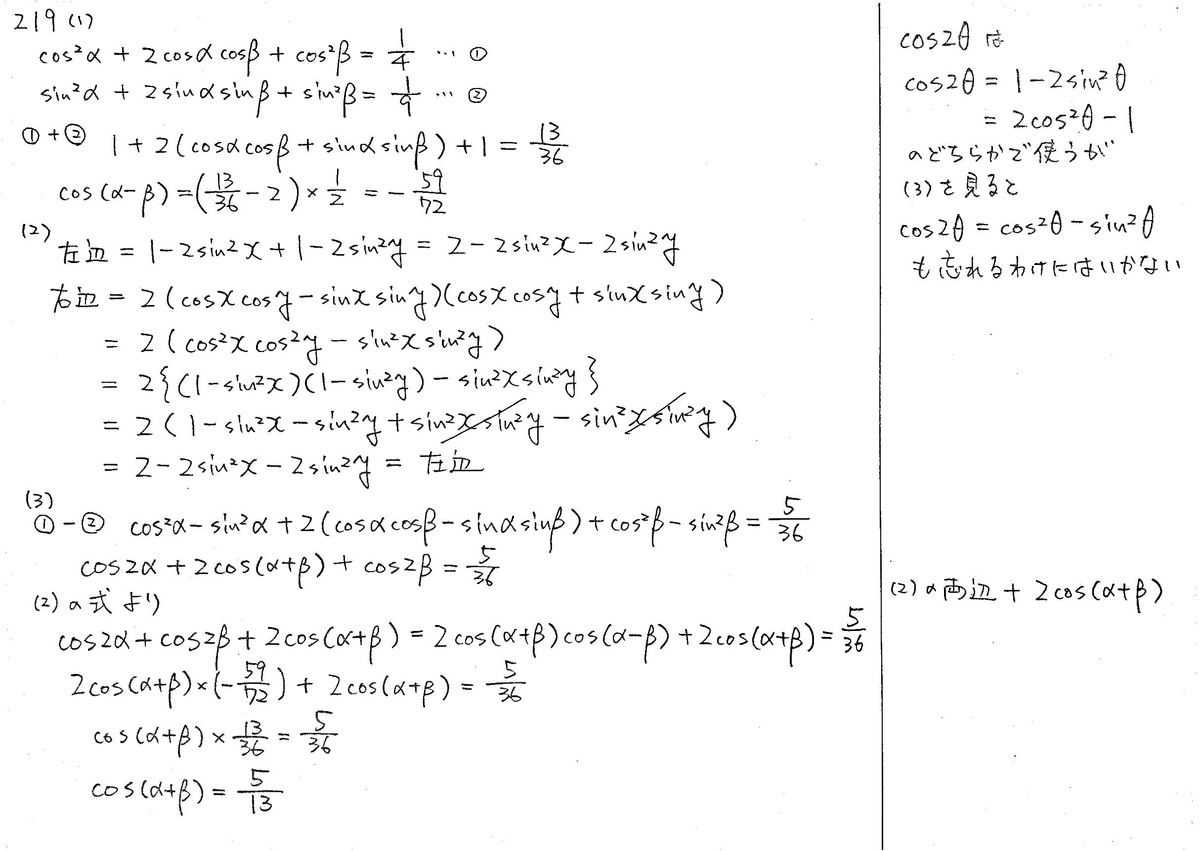 219 (1)
cos²α + 2cosα cosβ + cos²β = 1/4 … ①
sin²α + 2sinα sinβ + sin²β = 1/9 … ②
①+② 1 + 2(cosα cosβ + sinα sinβ) + 1 = 13/36
cos(α-β) = (13/36 - 2) × 1/2 = - 59/72
(2)
左辺 = 1-2sin²x + 1-2sin²y = 2-2sin²x-2sin²y
右辺 = 2(cosx cosy - sinx siny)(cosx cosy + sinx siny)
= 2(cos²x cos²y - sin²x sin²y)
= 2{(1-sin²x)(1-sin²y) - sin²x sin²y}
= 2(1-sin²x-sin²y+sin²x sin²y - sin²x sin²y)
= 2-2sin²x-2sin²y = 左辺
(3)
①-② cos²α-sin²α+2(cosα cosβ-sinα sinβ)+cos²β-sin²β = 5/36
cos2α + 2cos(α+β) + cos2β = 5/36
(2)の式より
cos2α + cos2β + 2cos(α+β) = 2cos(α+β)cos(α-β) + 2cos(α+β) = 5/36
2cos(α+β)×(-59/72) + 2cos(α+β) = 5/36
cos(α+β) × 13/36 = 5/36
cos(α+β) = 5/13
cos2θ は
cos2θ = 1-2sin²θ
= 2cos²θ-1
のどちらかで使うが
(3)を見ると
cos2θ = cos²θ-sin²θ
も忘れるわけにはいかない
(2)の両辺 + 2cos(α+β)